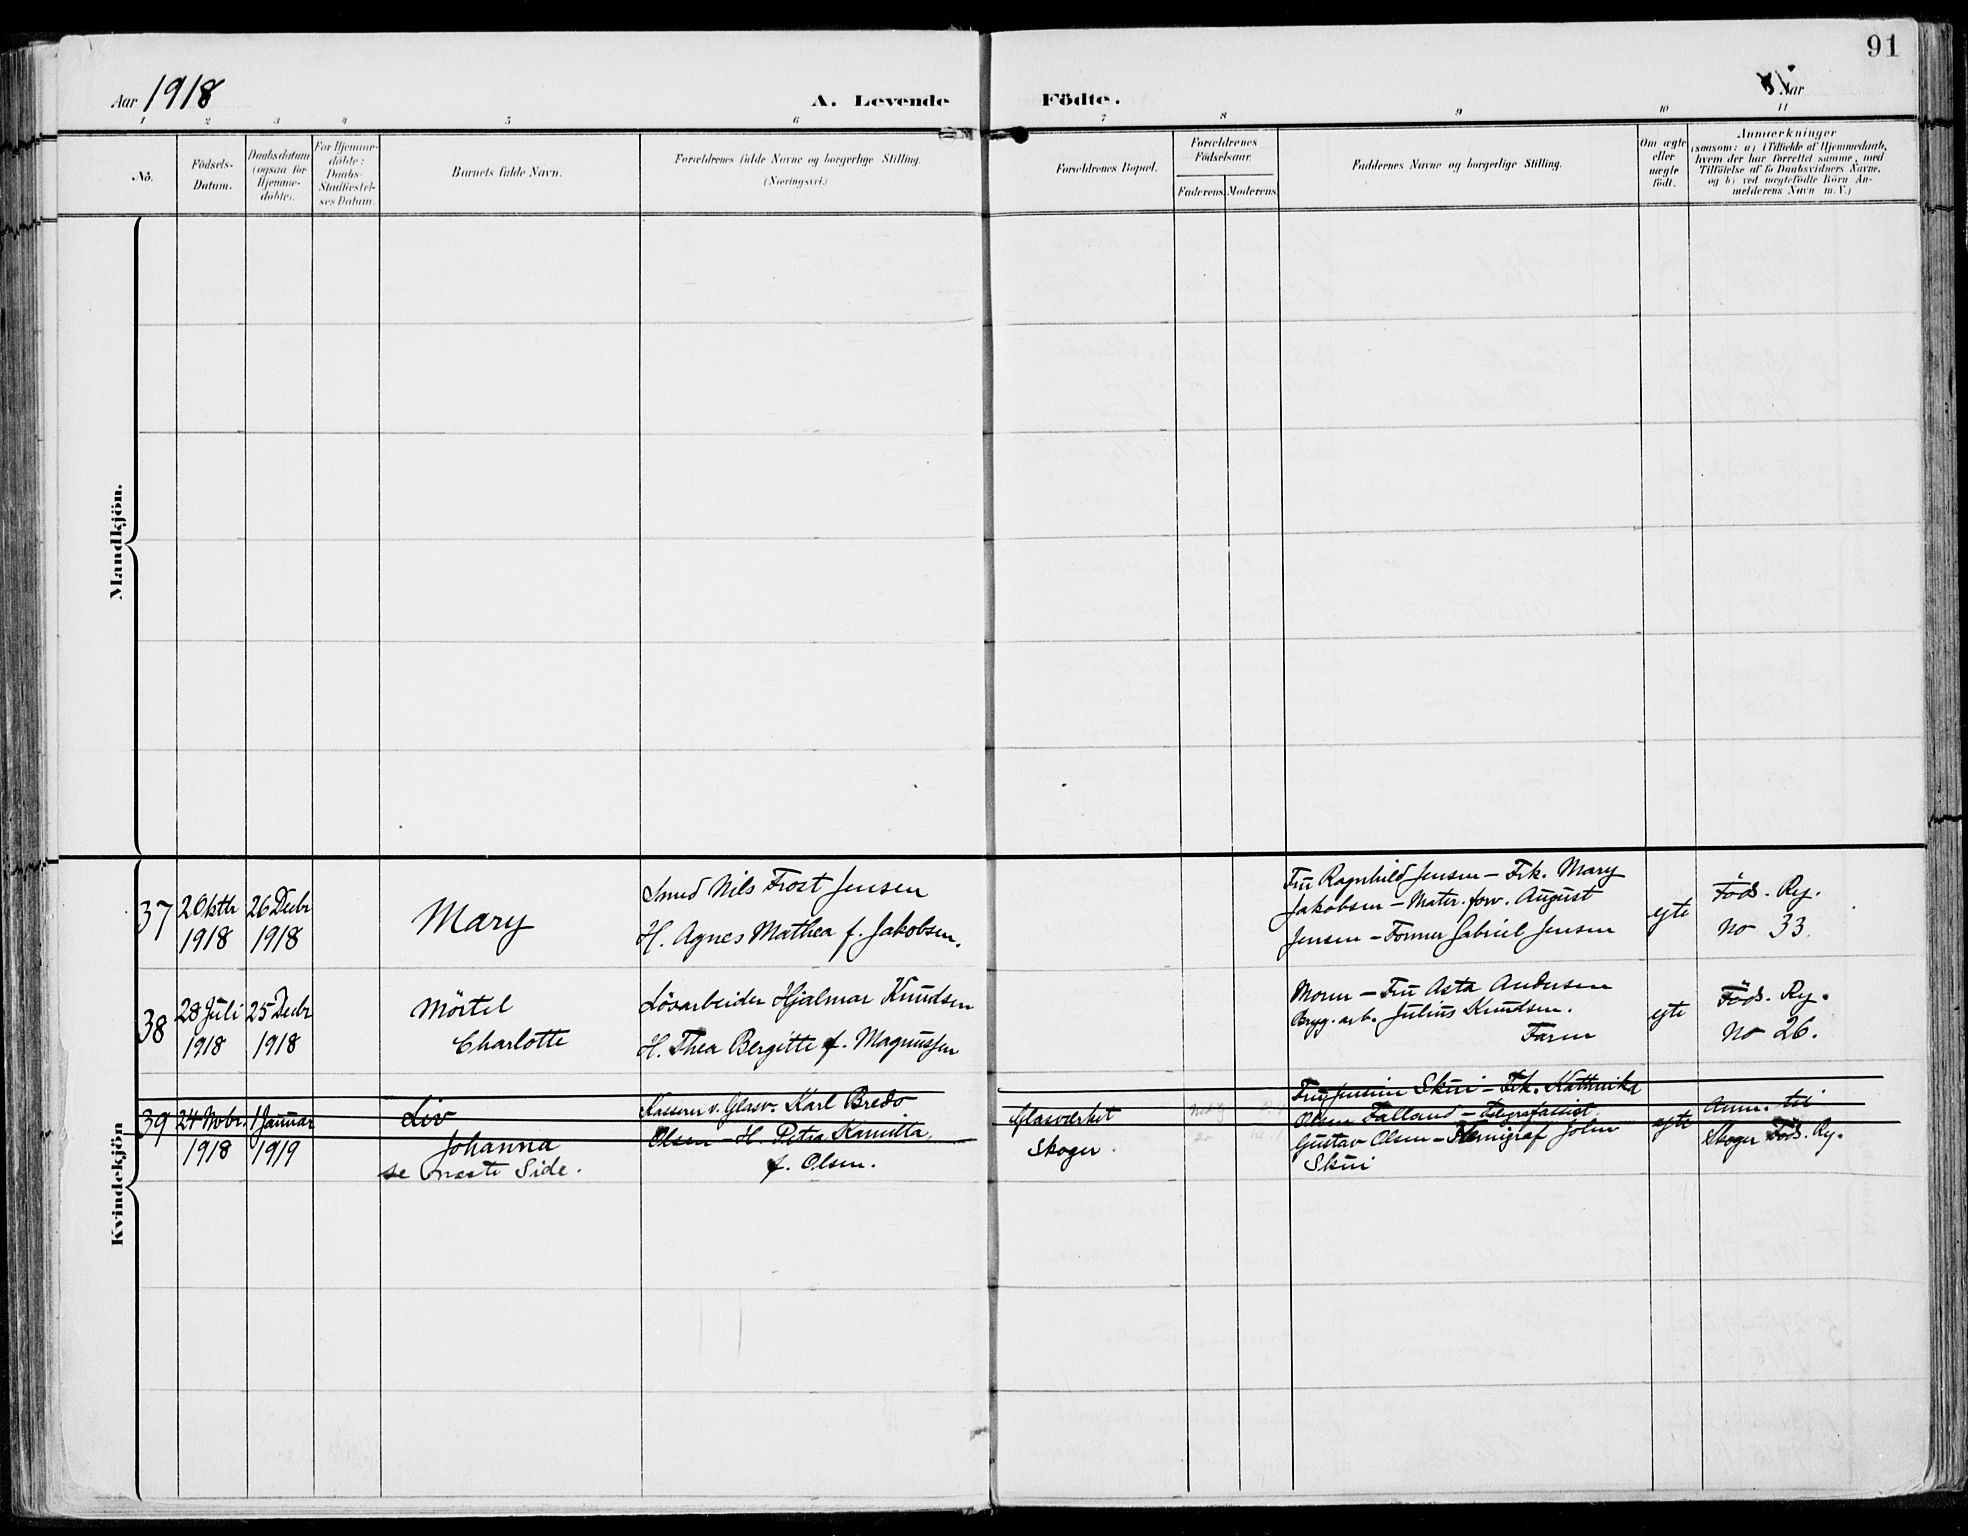 91
Aar 1918
A. Levende Födte.
Aar
1 2 3 4 5 6 7 8 9 10 11
No.
Födsels-
Datum.
Daabsdatum
(ogsaa for
Hjemme-
döbte).
For Hjemme-
döbte:
Daabs-
Stadfæstel-
ses Datum.
Barnets fulde Navn.
Forældrenes fulde Navne og borgerlige Stilling.
(Næringsvei.)
Forældrenes Bopæl.
Forældrenes
Födselsaar.
Faderens. Moderens.
Faddernes Navne og borgerlige Stilling.
Om ægte
eller
uægte
født.
Anmærkninger
(saasom: a) i Tilfælde af Hjemmedaab,
hvem der har forrettet samme, med
Tilföielse af to Daabsvidners Navne,
og b) ved uægtefödte Börn An-
melderens Navn m. V.)
Mandkjön.
Kvindekjön
37
2 Oktb
1918
26 Decbr
1918
Mary
Smed Nils Frost Jensen
H. Agnes Mathea f. Jakobsen.
Fru Ragnhild Jensen – Frk. Mary
Jakobsen – Mater. forv. August
Jensen – Former Gabriel Jensen
egte
Föds. Rg.
No 33.
38
28 Juli
1918
25 Decbr
1918
Mörtel
Charlotte
Lösarbeider Hjalmar Knudsen
H. Thea Bergitte f. Magnussen
Moren – Fru Asta Andersen
Bryg. arb. Julius Knudsen.
Faren
egte
Föds. Rg.
No 26.
39
24 Nobr.
1918
1 Januar
1919
Liv
Johanna
se næste Side.
Kasserer v. Glasv. Karl Bredo
Olsen – H. Petra Kamilla
f. Olsen.
Glasværket
Skoger
Fru Jensine Skui – Frk. Kathinka
Olsen Falland – Telegrafassist.
Gustav Olsen – Kemigraf John
Skui
egte
Anm. til
Skoger Föds. Rg.